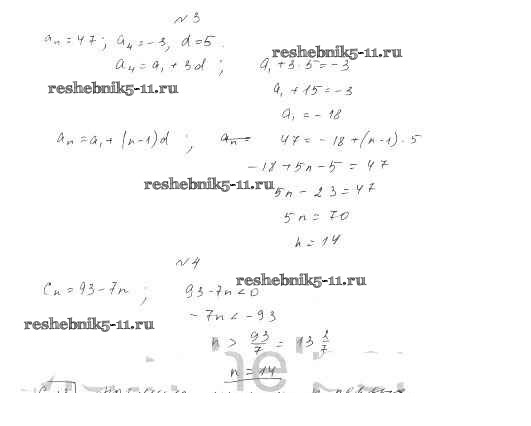 №3
aₙ = 47; a₄ = -3, d = 5.
reshebnik5-11.ru
a₄ = a₁ + 3d; a₁ + 3·5 = -3
reshebnik5-11.ru
a₁ + 15 = -3
a₁ = -18
aₙ = a₁ + (n-1)d; aₙ = 47 = -18 + (n-1)·5
-18 + 5n - 5 = 47
reshebnik5-11.ru
5n - 23 = 47
5n = 70
n = 14
№4
reshebnik5-11.ru
Cₙ = 93 - 7n; 93 - 7n < 0
reshebnik5-11.ru
-7n < -93
n > 93/7 = 13 2/7
n = 14